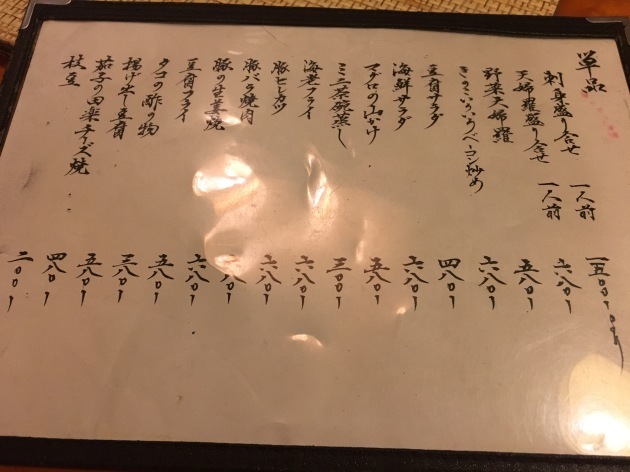 単品
刺身盛り合せ 一人前 一五〇〇
天婦羅盛り合せ 一人前 六八〇
野菜天婦羅 五八〇
きのこいろいろベーコン炒め 六八〇
豆腐サラダ 四八〇
海鮮サラダ 六八〇
マグロの山かけ 五八〇
ミニ茶碗蒸し 三〇〇
海老フライ 六八〇
豚ヒレカツ 六八〇
豚バラ焼肉 八〇
豚の生姜焼 六八〇
豆腐フライ 五八〇
タコの酢の物 三八〇
揚げ出し豆腐 五八〇
茄子の田楽チーズ焼 四八〇
枝豆 二〇〇